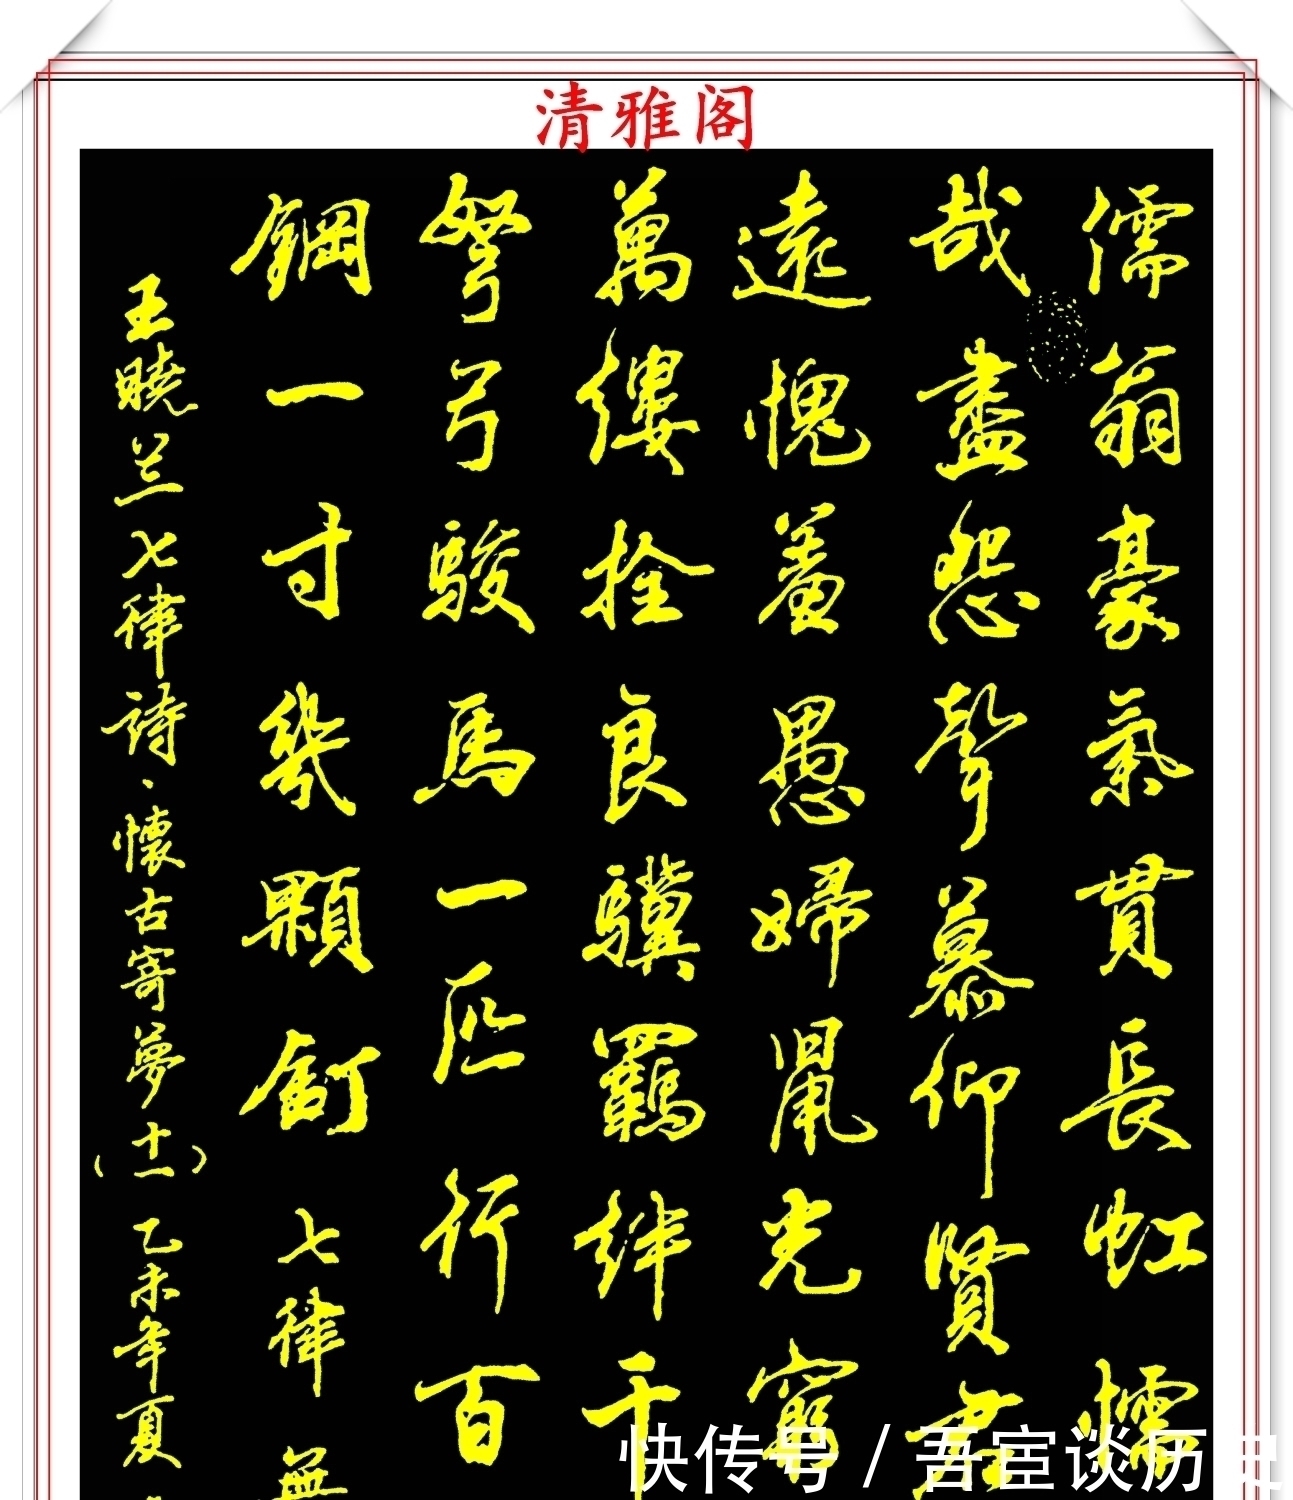 清雅阁
儒翁豪氣貫長虹懦
哉盡怨聲慕仰賢
遠愧羞愚婦鼠光窮
萬縷拴良驥羈絆千
弩弓駿馬一匹行百
鋼一寸幾顆釘 七律 無
王曉兰七律詩、懷古寄夢(十一)乙未年夏
快传号/吾宦谈历史